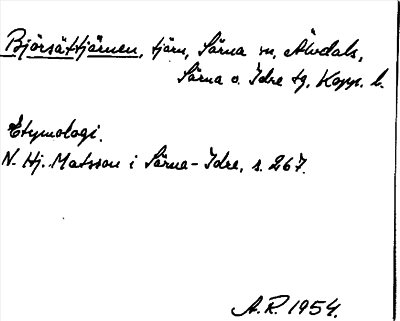 Björsättjärnen, tjärn, Särna sn, Älvdals,
Särna o. Idre tg, Kopp. l.
Etymologi.
N. Hj. Matsson i Särna-Idre, s. 267.
A.R. 1954.